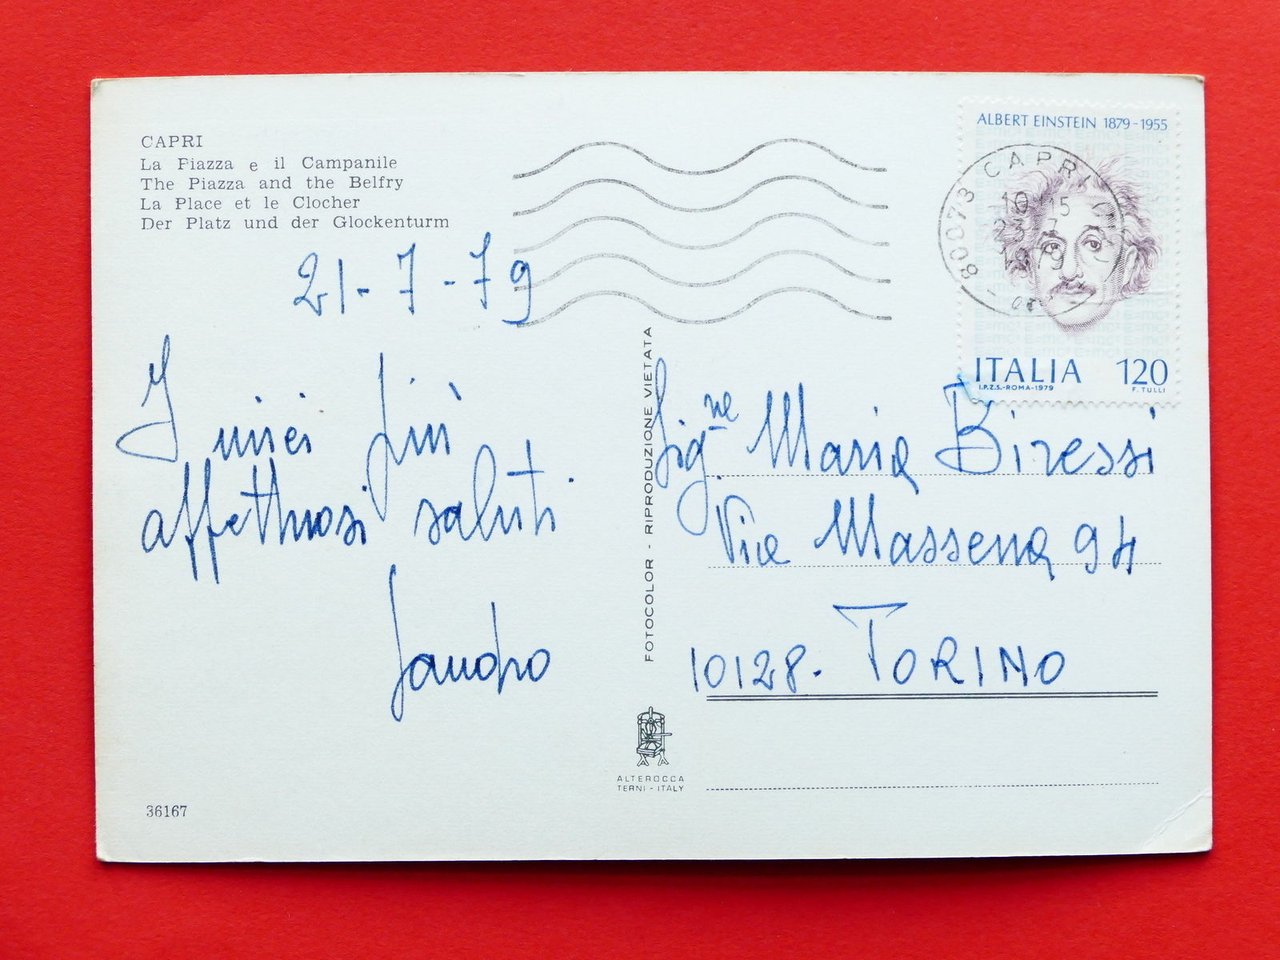 CAPRI
La Piazza e il Campanile
The Piazza and the Belfry
La Place et le Clocher
Der Platz und der Glockenturm
21-7-79
I miei più
affettuosi saluti
Sandro
36167
FOTOCOLOR - RIPRODUZIONE VIETATA
ALTEROCCA
TERNI - ITALY
ALBERT EINSTEIN 1879-1955
80073 CAPRI
10 15
23 7
1979
ITALIA 120
I.P.Z.S.-ROMA-1979 F. TULLI
Sig.ne Maria Biressi
Via Massena 94
10128. TORINO